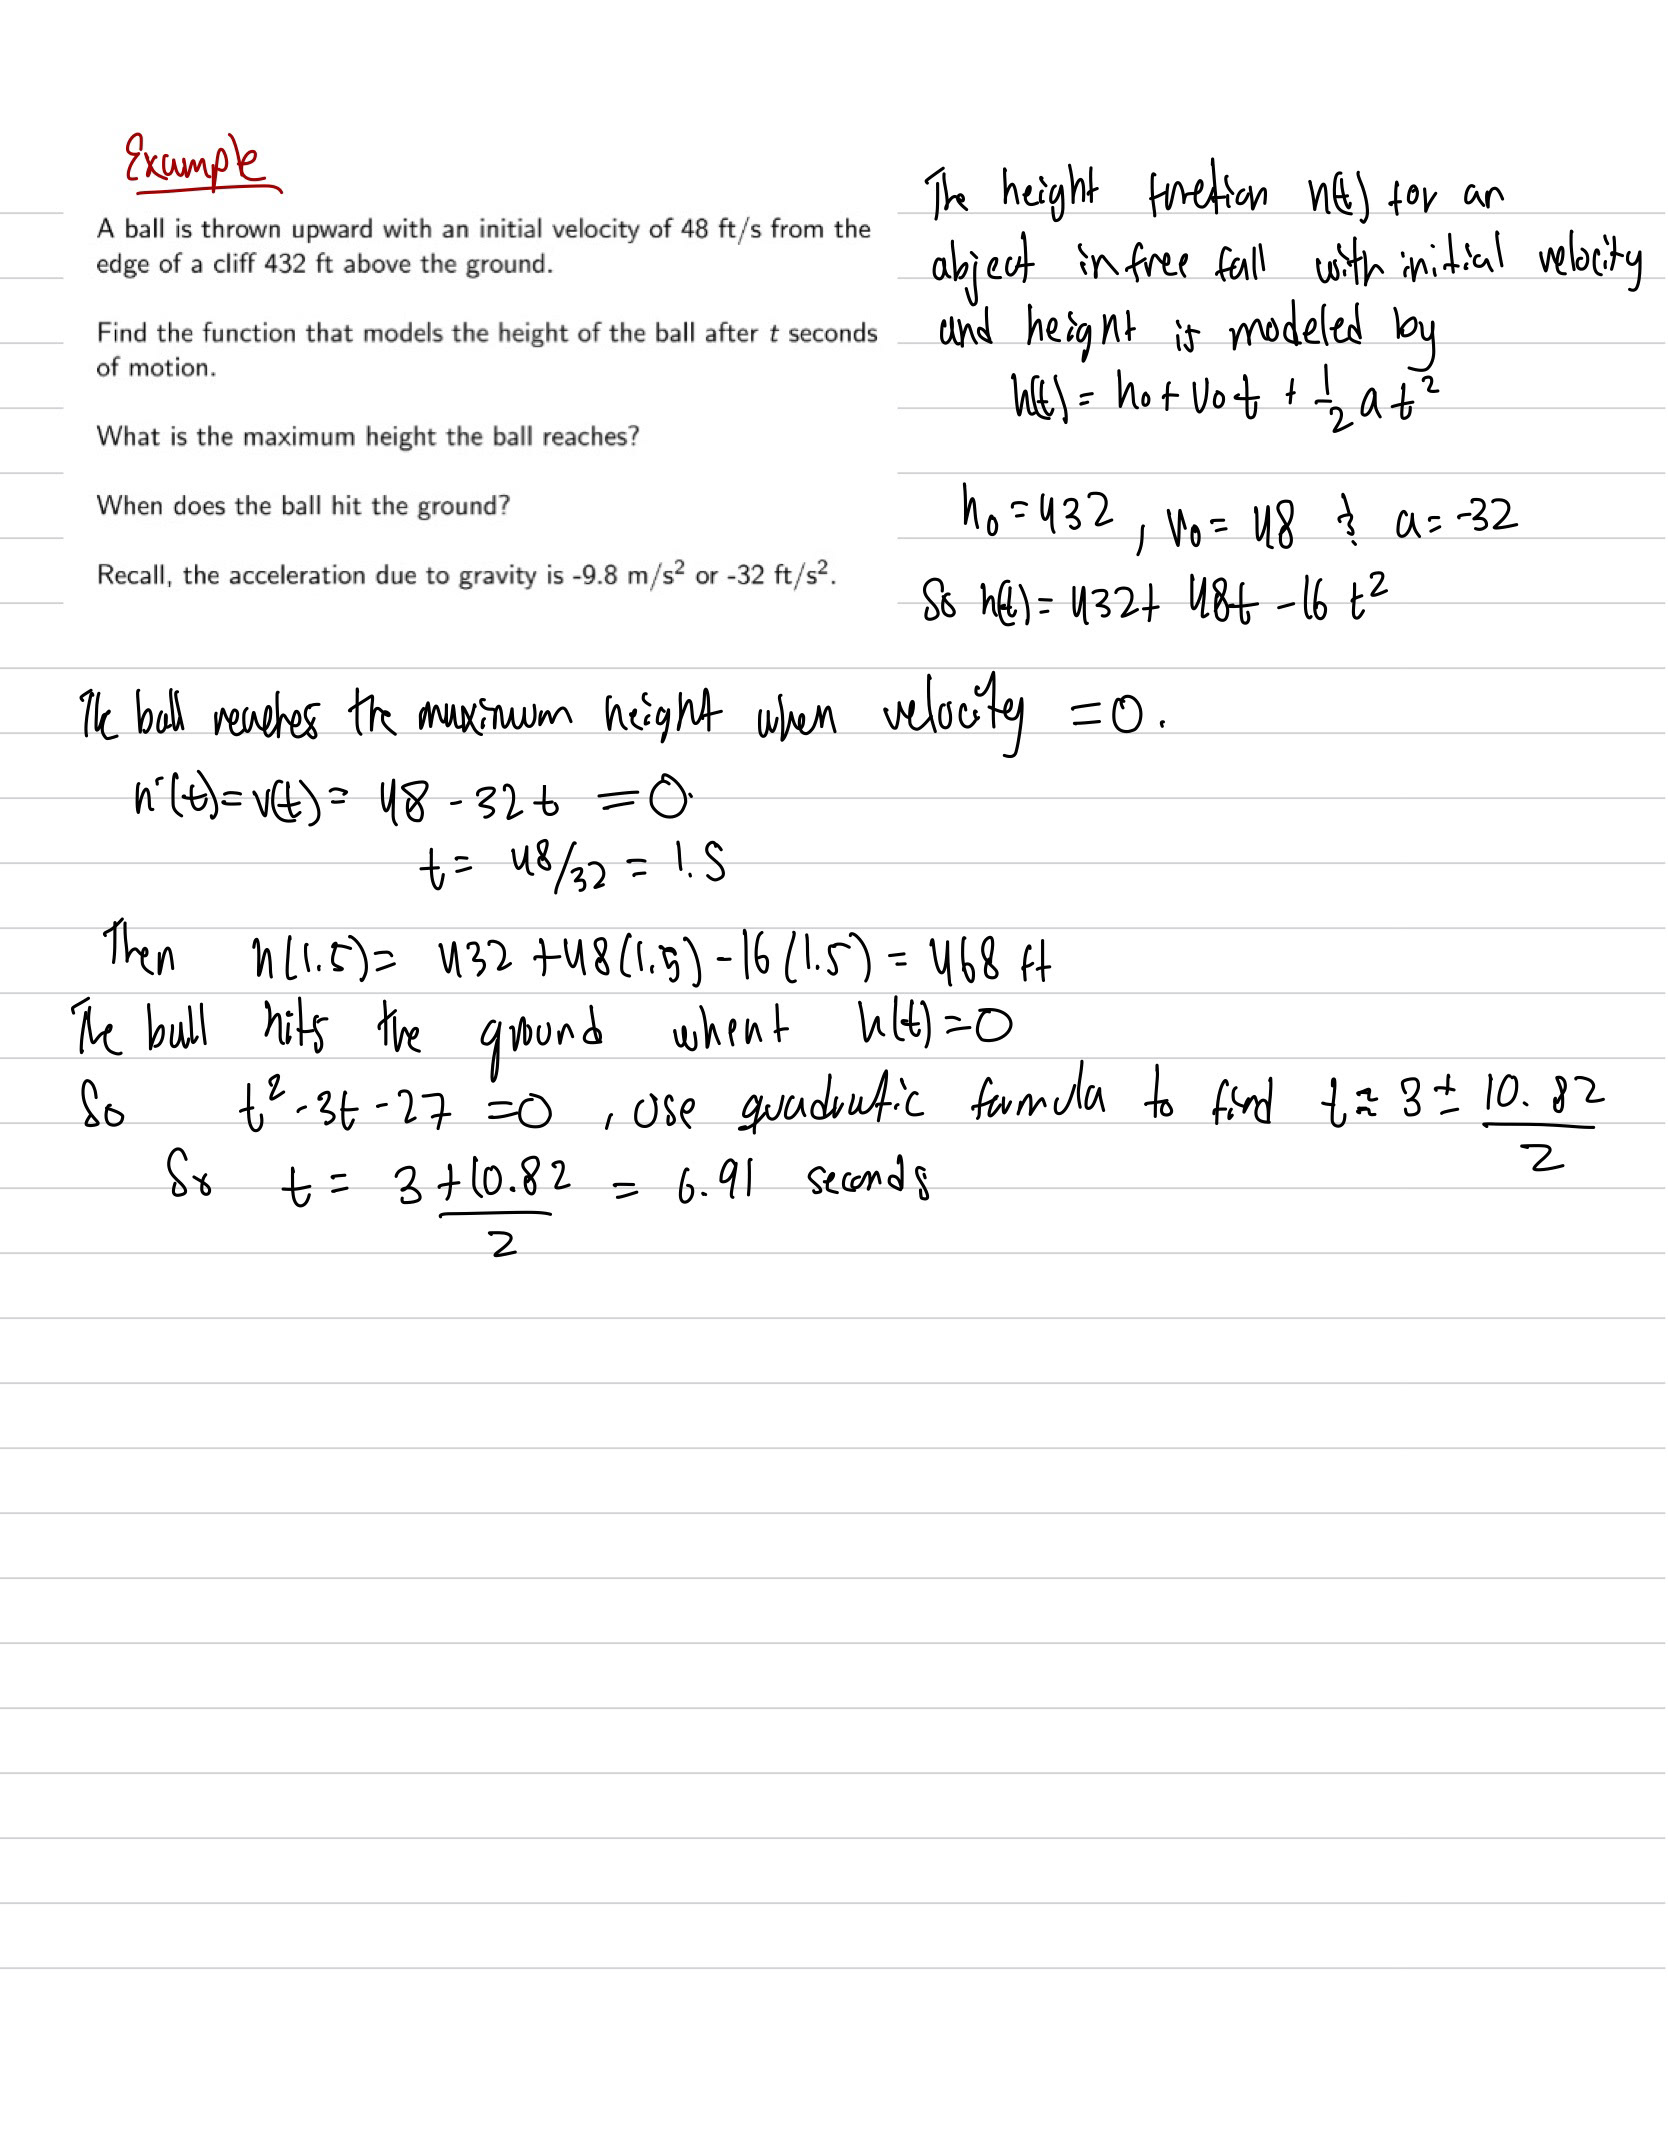 Example
A ball is thrown upward with an initial velocity of 48 ft/s from the
edge of a cliff 432 ft above the ground.
Find the function that models the height of the ball after t seconds
of motion.
What is the maximum height the ball reaches?
When does the ball hit the ground?
Recall, the acceleration due to gravity is -9.8 m/s² or -32 ft/s².
The height function h(t) for an
object in free fall with initial velocity
and height is modeled by
h(t) = h₀ + v₀t + 1/2 a t²
h₀ = 432, v₀ = 48 & a = -32
So h(t) = 432 + 48t - 16 t²
The ball reaches the maximum height when velocity = 0.
h'(t) = v(t) = 48 - 32t = 0.
t = 48/32 = 1.5
Then h(1.5) = 432 + 48(1.5) - 16(1.5) = 468 ft
The ball hits the ground when t h(t) = 0
So t² - 3t - 27 = 0, use quadratic formula to find t ≈ 3 ± 10.82/2
So t = 3 + 10.82/2 = 6.91 seconds